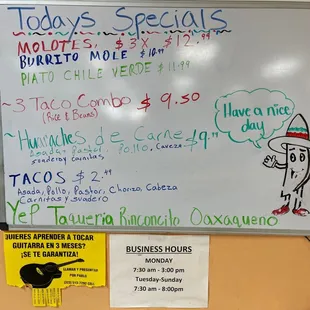 Todays Specials
MOLOTES. $3 x $12.99
BURRITO MOLE $10.99
PLATO CHILE VERDE $11.99
~3 Taco Combo $9.50
(Rice & Beans)
~Huaraches de Carne $9.99
Asada, Pastor, Pollo, Cabeza
suadero y carnitas
Have a nice
day
TACOS $2.49
Asada, Pollo, Pastor, Chorizo, Cabeza
Carnitas y suadero
YeP Taqueria Rinconcito Oaxaqueno
QUIERES APRENDER A TOCAR
GUITARRA EN 3 MESES?
¡SE TE GARANTIZA!
LLAMAR Y PREGUNTAR
POR PABLO
BUSINESS HOURS
MONDAY
7:30 am - 3:00 pm
Tuesday-Sunday
7:30 am - 8:00pm